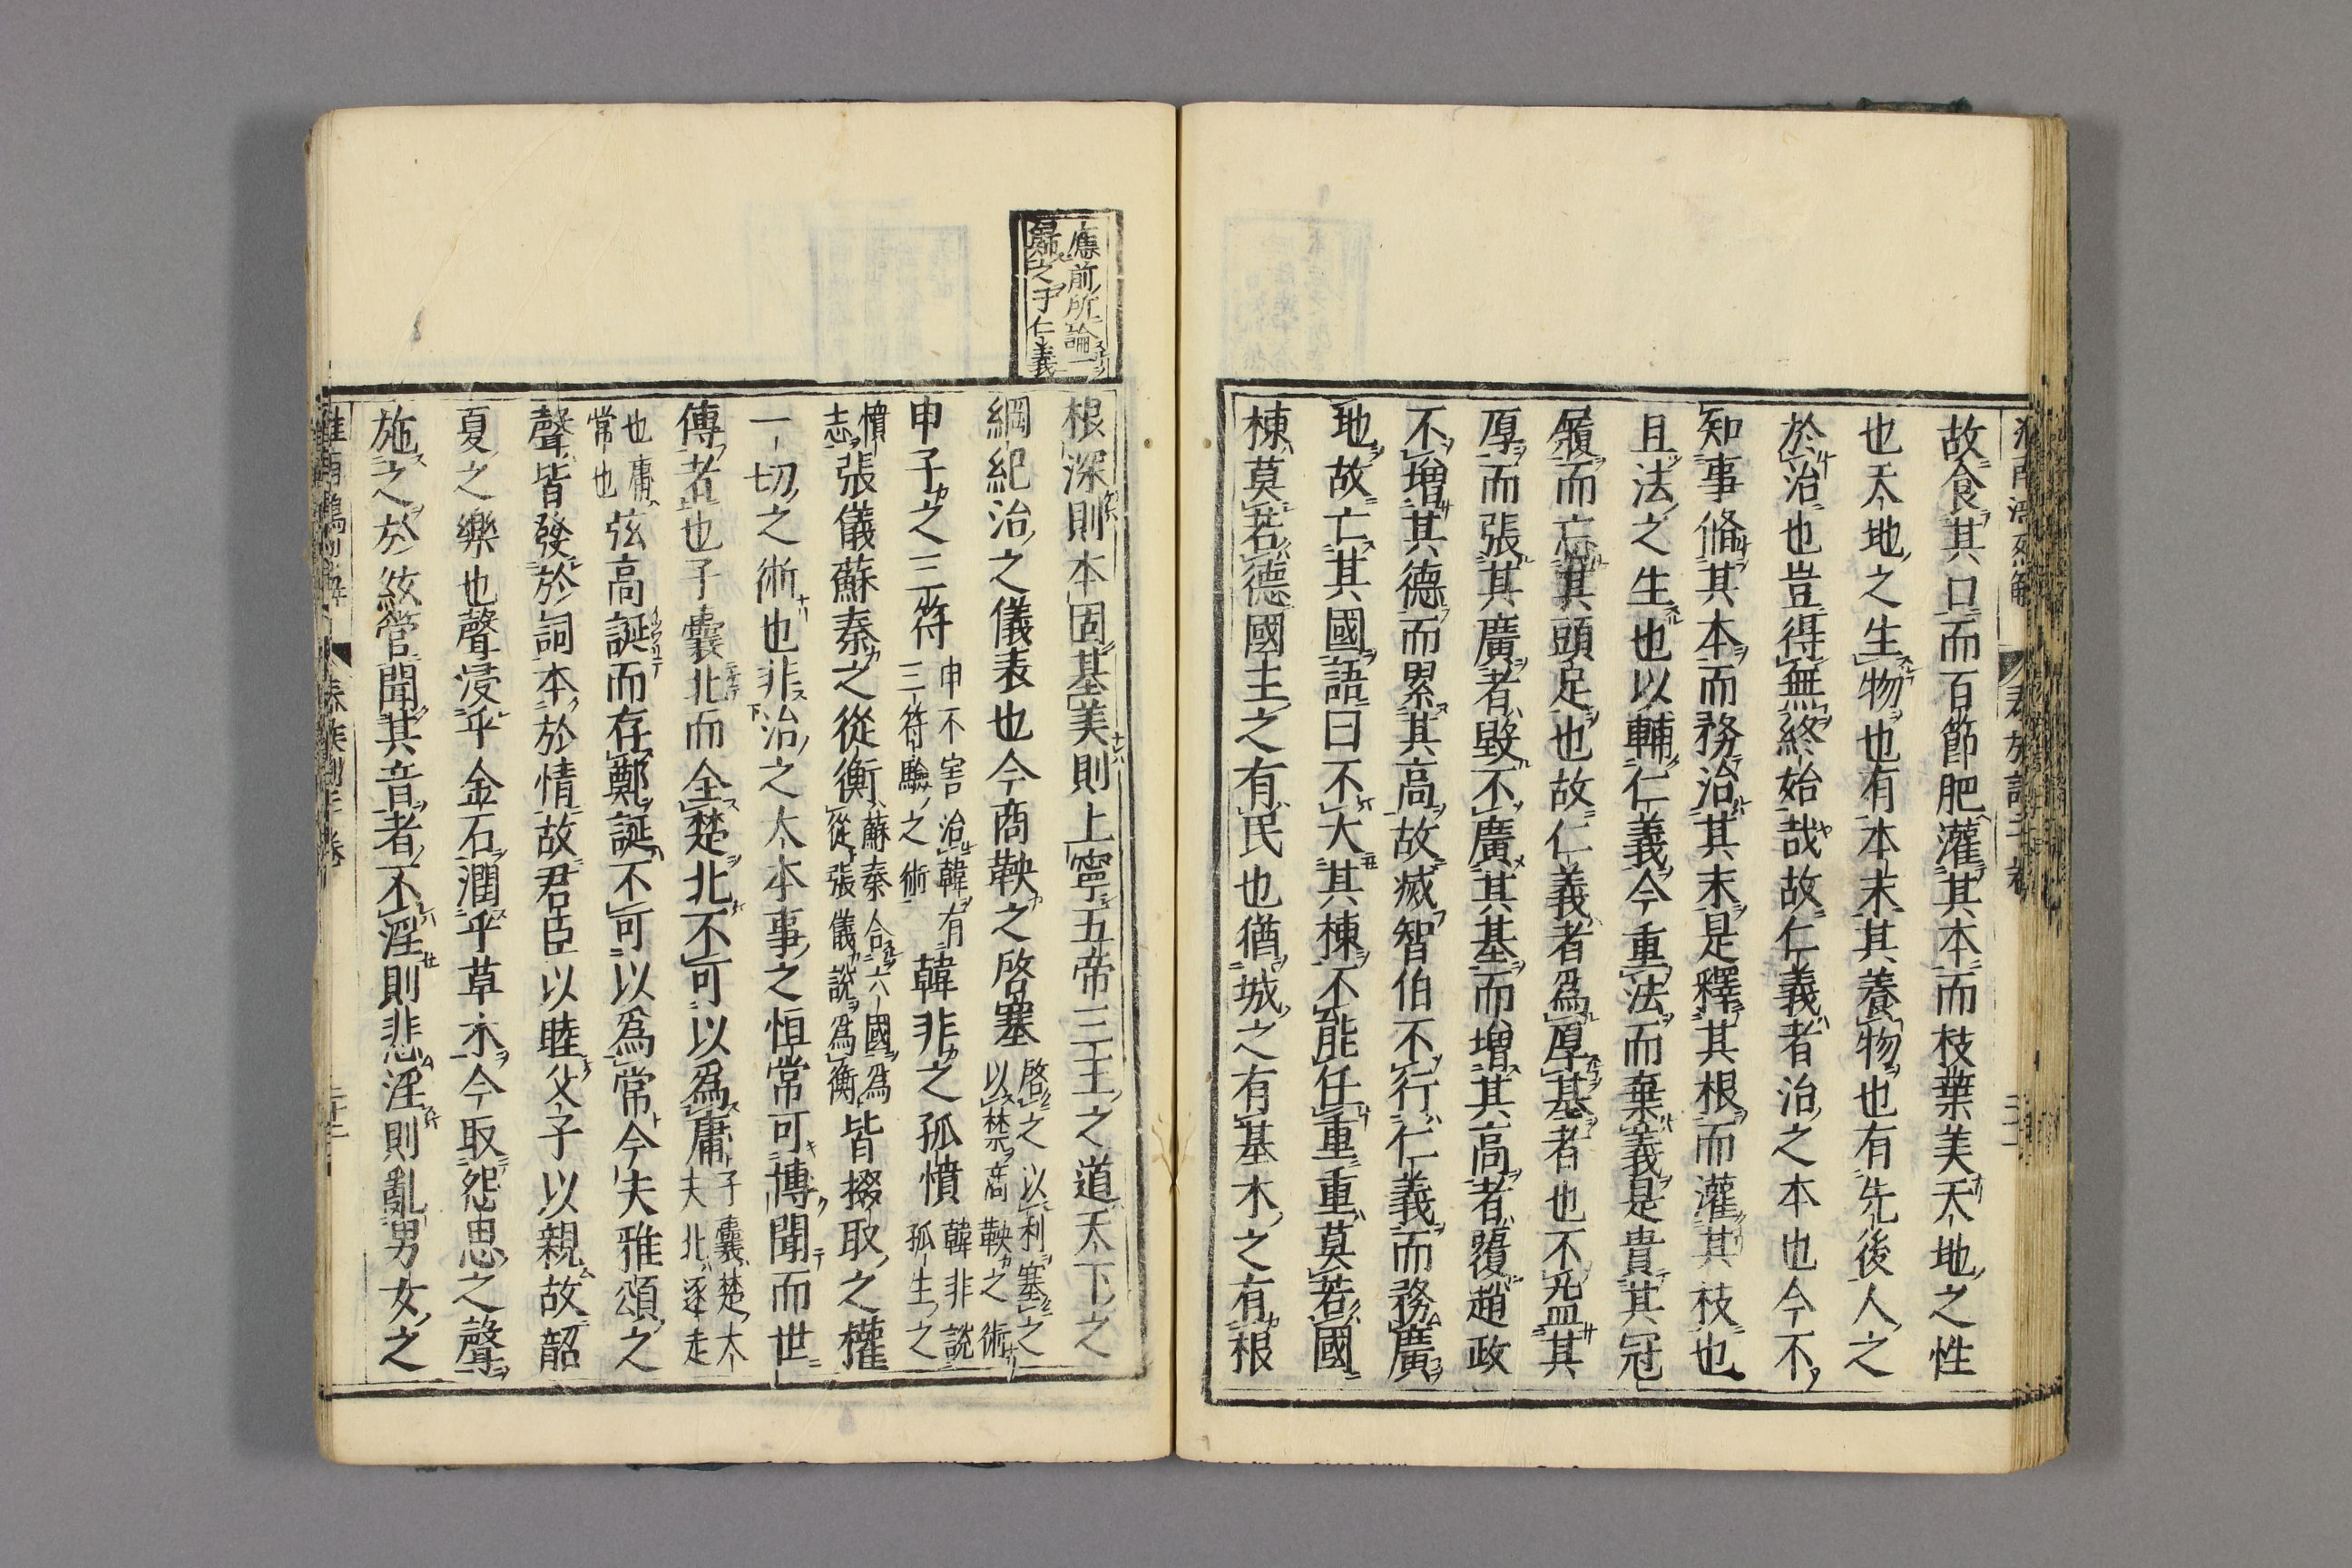 故食其口而百節肥灌其本而枝葉美天地之性
也天地之生物也有本末其養物也有先後人之
於治也豈得無終始哉故仁義者治之本也今不
知事脩其本而務治其末是釋其根而灌其枝也
且法之生也以輔仁義今重法而棄義是貴其冠
履而忘其頭足也故仁義者爲厚基者也不益其
厚而張其廣者毀不廣其基而增其高者覆趙政
不增其德而累其高故滅智伯不行仁義而務廣
地故亡其國語曰不大其棟不能任重重莫若國
棟莫若德國主之有民也猶城之有基木之有根
應前所論一
歸之于仁義
根深則本固基美則上寧五帝三王之道天下之
綱紀治之儀表也今商鞅之啓塞啓之以利塞之以禁商鞅之術
申子之三符申不害治韓有三符驗之術韓非之孤憤韓非說孤生之
憤志張儀蘇秦之從衡蘇秦合六國爲從張儀說爲衡皆掇取之權
一切之術也非治之大本事之恒常可博聞而世
傳者也子囊北而全楚北不可以爲庸子囊楚大夫北逐走
也庸常也弦高誕而存鄭誕不可以爲常今夫雅頌之
聲皆發於詞本於情故君臣以睦父子以親故韶
夏之樂也聲浸乎金石潤乎草木今取怨思之聲
施之於絃管聞其音者不淫則悲淫則亂男女之